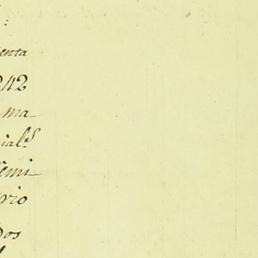 :
enta
242
ma
ial.s
emi
rio
dos